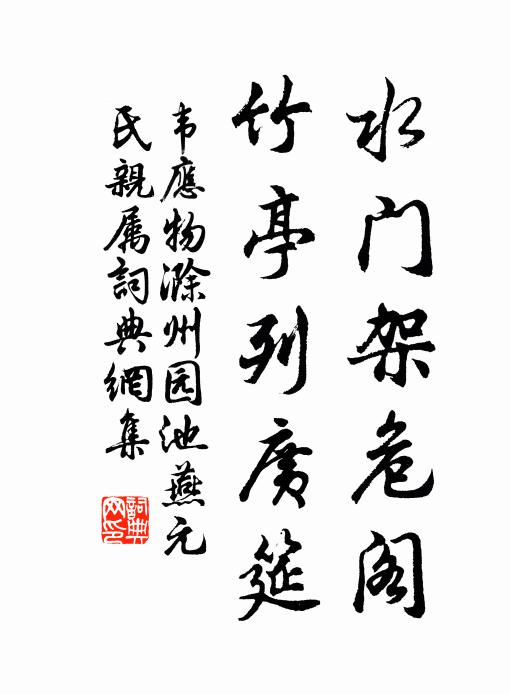 水门架危阁
竹亭列广筵
韦應物滁州园池燕元
氏親属詞典網集
詞典网印